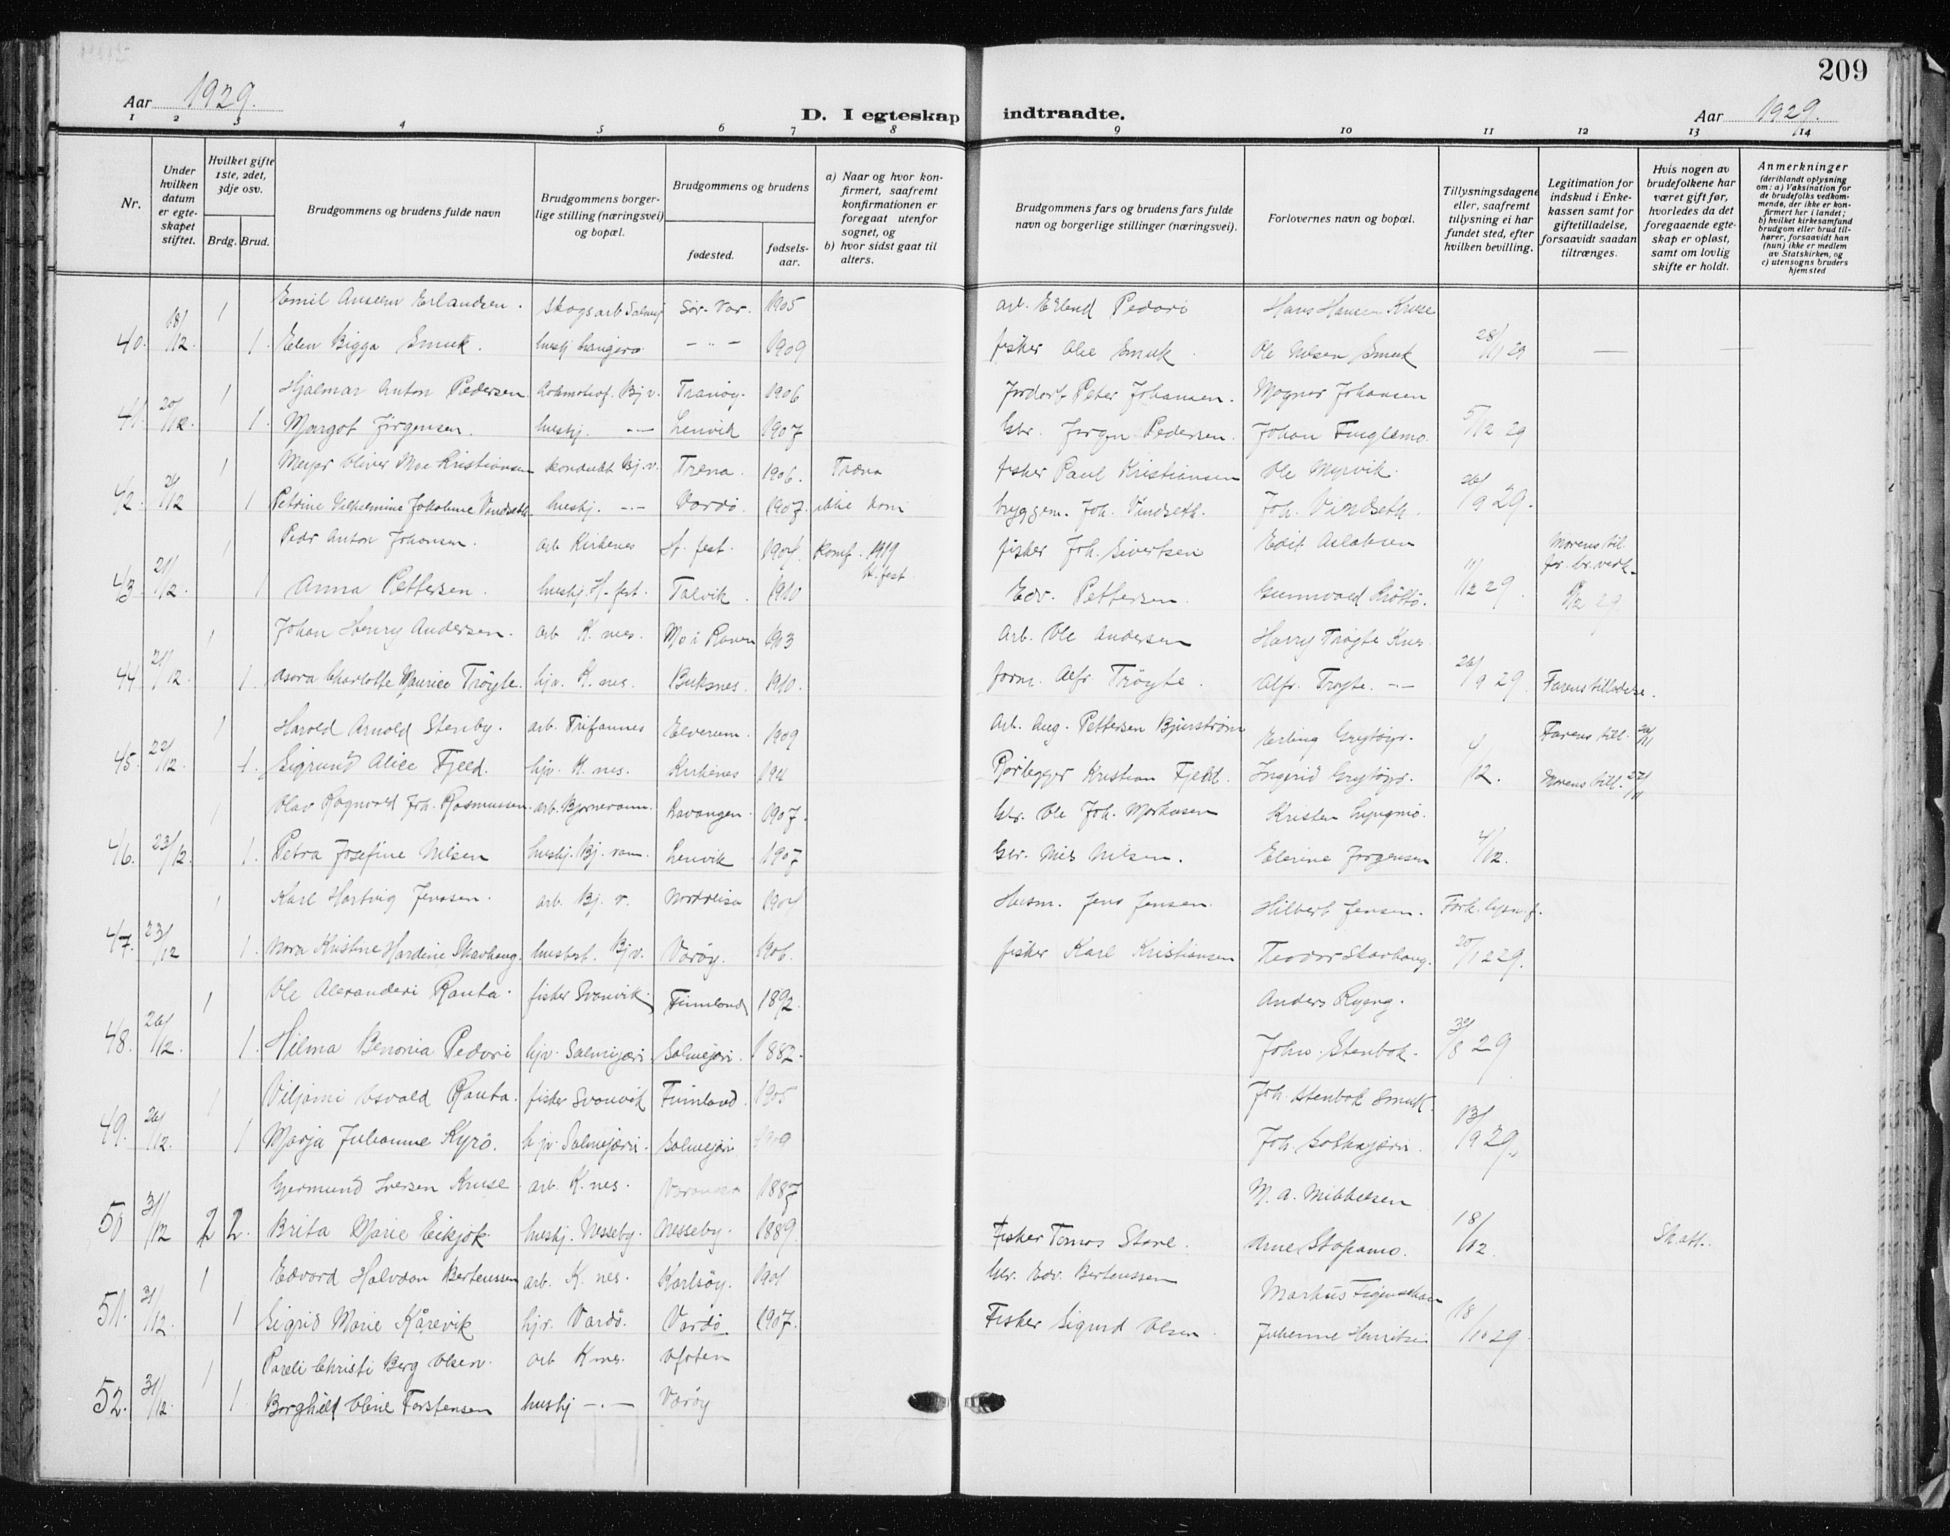 209
Aar 1929.
D. I egteskap indtraadte.
Aar 1929.
1 2 3 4 5 6 7 8 9 10 11 12 13 14
Nr.
Under hvilken datum er egteskapet stiftet.
Hvilket gifte 1ste, 2det, 3dje osv.
Brdg. Brud.
Brudgommens og brudens fulde navn
Brudgommens borgerlige stilling (næringsvei) og bopæl.
Brudgommens og brudens
fødested.
fødselsaar.
a) Naar og hvor konfirmert, saafremt konfirmationen er foregaat utenfor sognet, og
b) hvor sidst gaat til alters.
Brudgommens fars og brudens fars fulde navn og borgerlige stillinger (næringsvei).
Forlovernes navn og bopæl.
Tillysningsdagene eller, saafremt tillysning ei har fundet sted, efter hvilken bevilling.
Legitimation for indskud i Enkekassen samt for giftetilladelse, forsaavidt saadan tiltrænges.
Hvis nogen av brudefolkene har været gift før, hvorledes da det foregaaende egteskap er opløst, samt om lovlig skifte er holdt.
Anmerkninger (deriblandt oplysning om: a) Vaksination for de brudefolks vedkommende, der ikke er konfirmert her i landet; b) hvilket kirkesamfund brudgom eller brud tilhører, forsaavidt han (hun) ikke er medlem av Statskirken, og c) utensogns bruders hjemsted
1 Emil Anselm Erlandsen. skogsarb Salmij Sør-Var. 1905 arb. Erlend Pedari Hans Hansen Kruse
40. 18/12. 1. Elen Bigga Smuk. hushj Langero - " - 1909 fisker Ole Smuk. Ole Nilsen Smuk 28/11 29 — —
1 Hjalmar Anton Pedersen Bj v. Tranøy. 1906 Peter Johansen. Magnor Johansen
41. 20/12. 1. Margot Jørgensen. hushj. -"- Lenvik 1907 Gbr. Jørgn Pedersen. Johan Fuglemo. 5/12 29
1 Meyer Oliver Moe Kristiansen kondukt Bj. v. Træna. 1906. Træna fisker Paul Kristiansen Ole Myrvik.
42. 21/12 1 Petrine Vilhelmine Johanne Vindseth hushj. -"- Vardø. 1907. ikke kom byggem. Joh. Vindseth. Joh. Vindseth. 26/9 29.
1 Pedr Anton Johansen. arb Kirkenes H. fest. 1904 Konf. 1919 H. fest fisker Joh. Sivertsen Edit Aslaksen Morens til
43. 21/12. 1 Anna Pettersen hushj. H-fest. Talvik. 1910 Edv. Pettersen. Gunnvald Krøttø. 11/12 29. for br. verk.
1 Johan Henry Andersen. arb K. nes. Mo i Ranen 1903 Arb. Ole Andersen Harry Trøyte Knes
44 21/12. 1. Asora Charlotte Maurice Trøyte. hjv. K. nes. Buksnes. 1910. form. Alfr. Trøyte. Alfr. Trøyte. -"- 26/9 29. Farens tilladelse.
1 Harald Arnold Stenby. arb. Trifannes Elverum. 1909 Arb. Aug. Pettersen Bjurstrøm Erling Grytøyr. Farens till. 20/11
45. 22/12. 1. Sigrund Alice Fjeld. hjv. K. nes. Kirkenes 191 Rørlegger Kristian Fjeld. Ingrid Grytøyr. 4/12. Morens till. 27/11
1 Olav Ragnvald Joh. Rasmussen arb. Bjørnevann. Kavangen. 1907. Gbr. Ole Joh. Markusen Kristen Lyngmo.
46. 23/12. 1. Petra Josefine Nilsen hushj. Bj. van. Lenvik 1907 Gbr. Nils Nilsen. Elerine Jørgensen 4/12.
1 Karl Hartvig Jensen. arb. Bj. v. Nordreisa 1904 Husm. Jens Jensen. Hilbert Jensen. Fork. lysn. f.
47. 23/12 1. Nora Kristine Hardine Skavhaug. Bjv. Værøy. 1906. fisker Karl Kristiansen Teodor Skavhaug. 20/12 29.
1 Ole Alexanderi Ranta. fisker Svanvik. Finnland 1892. Anders Ryeng.
48. 26/12. 1. Hilma Benonia Pedari hjv. Salmijæri Salmejæri. 1882. Johs. Stenbok. 30/8 29
1 Viljami Osvald Ranta. fisker Svanvik Finnland. 1905 Joh. Stenbok Smuk.
49. 26/12. 1 Marja Julianne Kyrø. hjv Salmejæri. Salmejæri 1909 Joh. 13/9 29.
Gjermund Iversen Kruse. arb. K. nes. 1887 M. A. Mikkelsen
50 31/12 2 2. Brita Marie Eikjok. hushj. Nesseby. Nesseby. 1889. Fisker Tomas Store. Arne Stopamo. 18/12. Skatt.
1 Edvard Halvdan Bertenssen arb. K. nes. Karlsøy. 1901 Gbr. Edv. Bertenssen Markus Figenschau
51. 31/12. 1 Sigrid Marie Kårevik hjv. Vardø. Vardø 1907. Fisker Sigurd Olsen. Julianne 18/10 29.
1 Pareli Christi Berg Olsen. arb K nes. Ofoten
52. 31/12. 1. Borghild Oline Torstensen hushj -"- Værøy